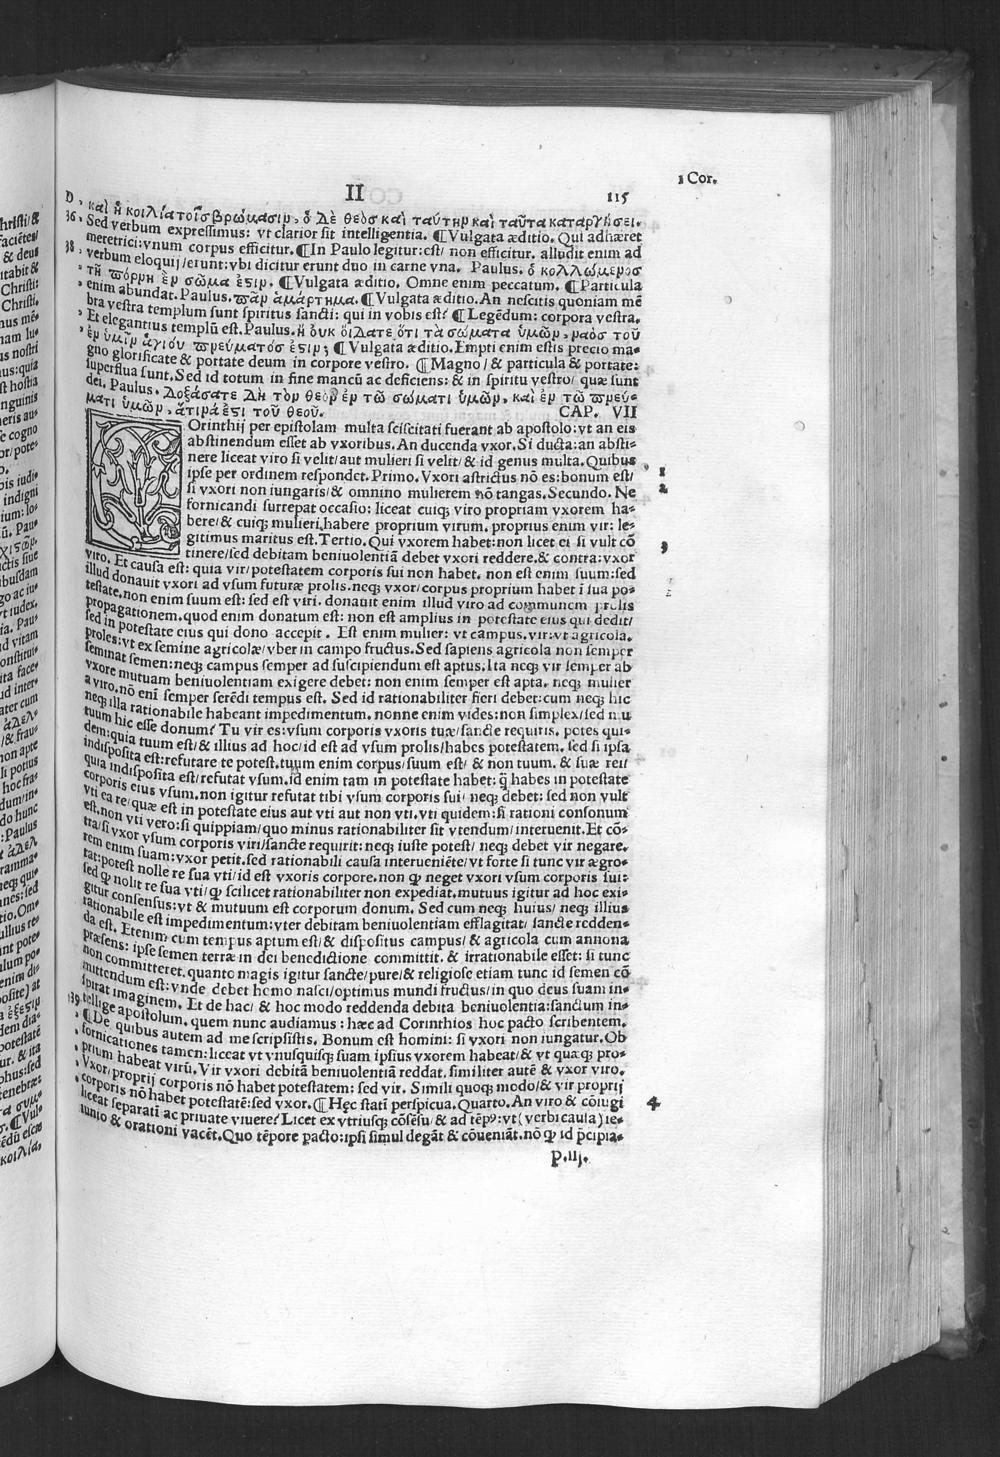 II 115 1 Cor.
D, καὶ ἡ κοιλία τοῖς βρώμασιν, ὁ Δὲ θεὸς καὶ ταύτην καὶ ταῦτα καταργήσει.
36, Sed verbum expressimus: vt clarior sit intelligentia. ¶ Vulgata æditio. Qui adhæret
meretrici: vnum corpus efficitur. ¶ In Paulo legitur: est/ non efficitur. alludit enim ad
38, verbum eloquij/ erunt: vbi dicitur erunt duo in carne vna. Paulus. ὁ κολλώμενος
, τῇ πόρνῃ ἓν σῶμα ἐστιν. ¶ Vulgata æditio. Omne enim peccatum. ¶ Particula
, enim abundat. Paulus. πᾶν ἁμάρτημα. ¶ Vulgata æditio. An nescitis quoniam mē
bra vestra templum sunt spiritus sancti: qui in vobis est? ¶ Legēdum: corpora vestra.
, Et elegantius templū est. Paulus. ἢ ὀυκ ὄιδατε ὅτι τὰ σώματα ὑμῶν, ναὸς τοῦ
, ἐν ὑμῖν ἁγίου πνεύματός ἐστιν; ¶ Vulgata æditio. Empti enim estis precio ma-
gno glorificate & portate deum in corpore vestro. ¶ Magno/ & particula & portate:
superflua sunt. Sed id totum in fine mancū ac deficiens: & in spiritu vestro/ quæ sunt
dei. Paulus. Δοξάσατε Δὴ τὸν θεὸν ἐν τῶ σώματι ὑμῶν, καὶ ἐν τῶ πνεύ-
ματι ὑμῶν, ἅτινά ἐστι τοῦ θεοῦ. CAP. VII
COrinthij per epistolam multa sciscitati fuerant ab apostolo: vt an eis
abstinendum esset ab vxoribus. An ducenda vxor. Si ducta: an absti-
nere liceat viro si velit/ aut mulieri si velit/ & id genus multa. Quibus
ipse per ordinem respondet. Primo. Vxori astrictus nō es: bonum est/ 1
si vxori non iungaris/ & omnino mulierem nō tangas. Secundo. Ne 2
fornicandi surrepat occasio: liceat cuiqȝ viro propriam vxorem ha-
bere/ & cuiqȝ mulieri habere proprium virum. proprius enim vir: le-
gitimus maritus est. Tertio. Qui vxorem habet: non licet ei si vult cō 3
tinere/ sed debitam beniuolentiā debet vxori reddere. & contra: vxor
viro. Et causa est: quia vir/ potestatem corporis sui non habet. non est enim suum: sed
illud donauit vxori ad vsum futuræ prolis. neqȝ vxor/ corpus proprium habet ī sua po-
testate. non enim suum est: sed est viri. donauit enim illud viro ad communem prolis
propagationem. quod enim donatum est: non est amplius in potestate eius qui dedit/
sed in potestate eius qui dono accepit. Est enim mulier: vt campus. vir: vt agricola.
proles: vt ex semine agricolæ/ vber in campo fructus. Sed sapiens agricola non semper
seminat semen: neqȝ campus semper ad suscipiendum est aptus. Ita neqȝ vir semper ab
vxore mutuam beniuolentiam exigere debet: non enim semper est apta. neqȝ mulier
a viro. nō enī semper serēdi tempus est. Sed id rationabiliter fieri debet: cum neqȝ hic
neqȝ illa rationabile habeant impedimentum. nonne enim vides: non simplex/ sed mu
tuum hic esse donum? Tu vir es: vsum corporis vxoris tuæ/ sancte requiris. potes qui-
dem: quia tuum est/ & illius ad hoc/ id est ad vsum prolis/ habes potestatem. sed si ipsa
indisposita est: refutare te potest. tuum enim corpus/ suum est/ & non tuum. & suæ rei/
quia indisposita est/ refutat vsum. id enim tam in potestate habet: ꝗ̄ habes in potestate
corporis eius vsum. non igitur refutat tibi vsum corporis sui/ neqȝ debet: sed non vult
vti ea re/ quæ est in potestate eius aut vti aut non vti. vti quidem: si rationi consonum
est. non vti vero: si quippiam/ quo minus rationabiliter sit vtendum/ interuenit. Et cō-
tra/ si vxor vsum corporis viri/ sancte requirit: neqȝ iuste potest/ neqȝ debet vir negare.
rem enim suam: vxor petit. sed rationabili causa interueniēte/ vt forte si tunc vir ægro-
tat: potest nolle re sua vti/ id est vxoris corpore. non ꝙ neget vxori vsum corporis sui:
sed ꝙ nolit re sua vti/ ꝙ scilicet rationabiliter non expediat. mutuus igitur ad hoc exi-
gitur consensus: vt & mutuum est corporum donum. Sed cum neqȝ huius/ neqȝ illius
rationabile est impedimentum: vter debitam beniuolentiam efflagitat/ sancte redden-
da est. Etenim cum tempus aptum est/ & dispositus campus/ & agricola cum annona
præsens: ipse semen terræ in dei benedictione committit. & irrationabile esset: si tunc
non committeret. quanto magis igitur sancte/ pure/ & religiose etiam tunc id semen cō
mittendum est: vnde debet homo nasci/ optimus mundi fructus/ in quo deus suam in-
spirat imaginem. Et de hac/ & hoc modo reddenda debita beniuolentia: sanctum in-
139 tellige apostolum. quem nunc audiamus: hæc ad Corinthios hoc pacto scribentem.
, ¶ De quibus autem ad me scripsistis. Bonum est homini: si vxori non iungatur. Ob
, fornicationes tamen: liceat vt vnusquisqȝ suam ipsius vxorem habeat/ & vt quæqȝ pro-
, prium habeat virū. Vir vxori debitā beniuolentiā reddat. similiter autē & vxor viro.
, Vxor/ proprij corporis nō habet potestatem: sed vir. Simili quoqȝ modo/ & vir proprij
, corporis nō habet potestatē: sed vxor. ¶ Hęc stati perspicua. Quarto. An viro & cōiugi 4
liceat separati ac priuate viuere? Licet ex vtriusqȝ cōsēsu/ & ad tēpꝰ: vt (verbi causa) ie-
iunio & orationi vacēt. Quo tēpore pacto: ipsi simul degāt & cōueniāt. nō ꝙ id p̄cipia-
p.iij.